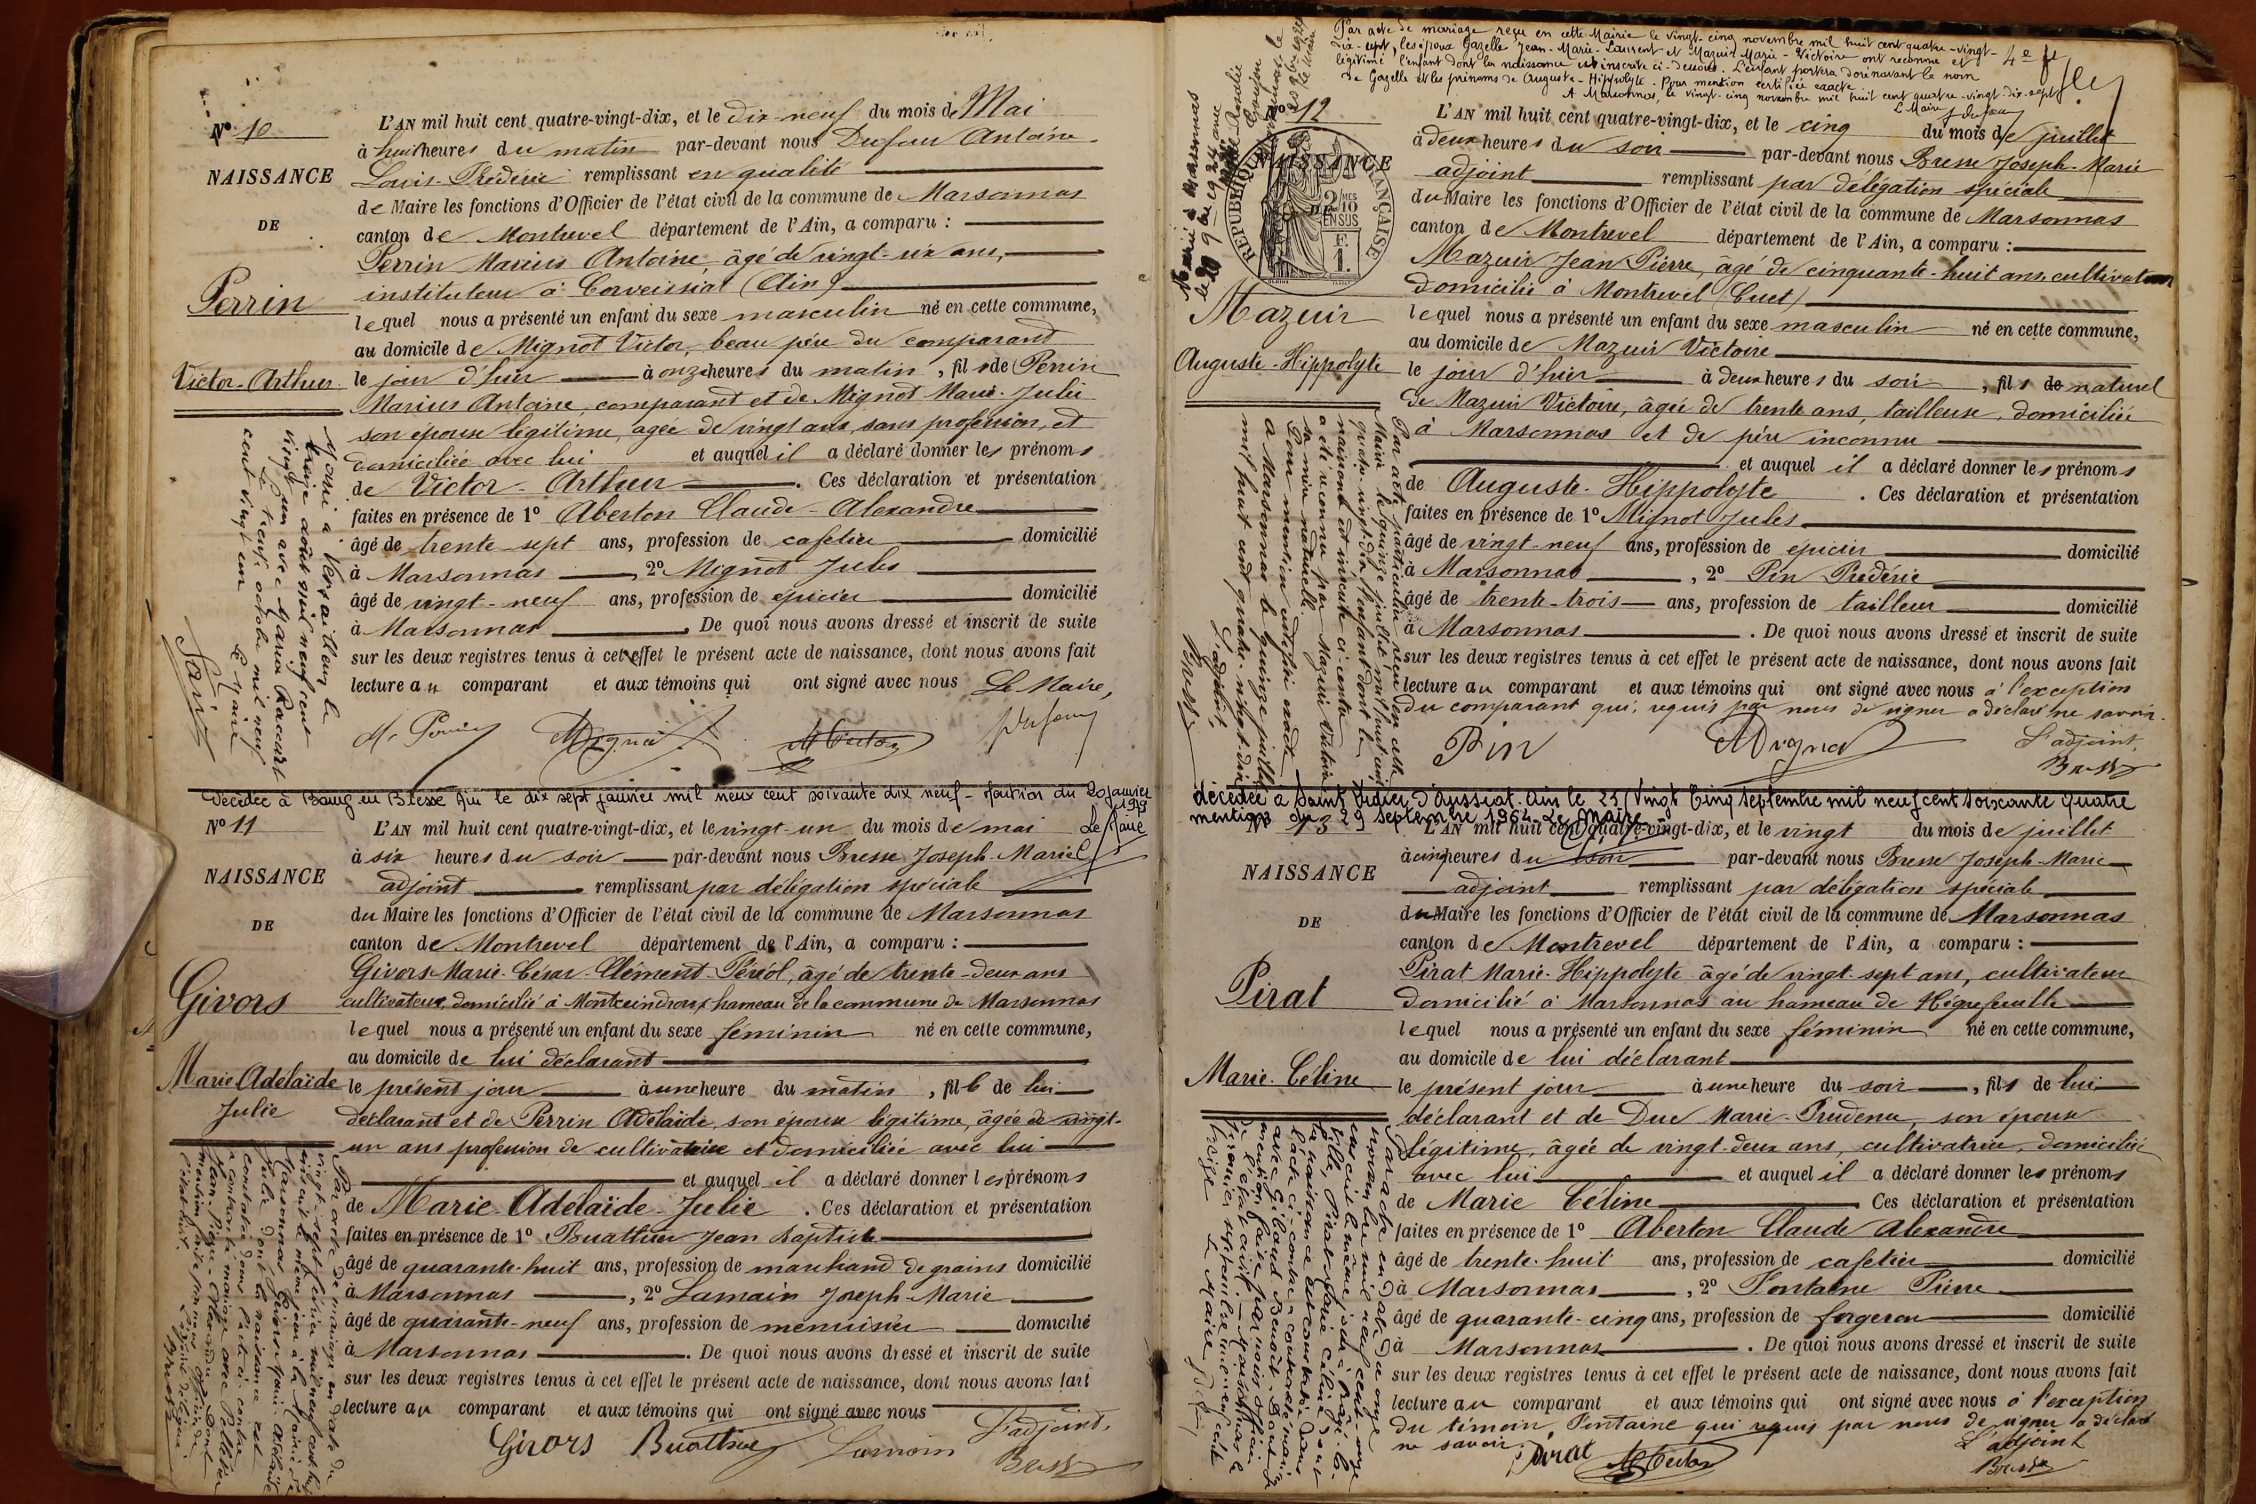 Nº 10
NAISSANCE
DE
Perrin
Victor-Arthur
L'AN mil huit cent quatre-vingt-dix, et le dix-neuf du mois de Mai
à huit heures du matin par-devant nous Dufour Antoine
Louis-Frédéric remplissant en qualité
de Maire les fonctions d'Officier de l'état civil de la commune de Marsonnas
canton de Montrevel département de l'Ain, a comparu :
Perrin Marius Antoine, âgé de vingt-six ans,
instituteur à Corveissiat (Ain)
lequel nous a présenté un enfant du sexe masculin né en cette commune,
au domicile de Mignot Victor, beau père du comparant
le jour d'hier à onze heures du matin, fils de Perrin
Marius Antoine, comparant et de Mignot Marie-Julie
son épouse légitime, agée de vingt ans, sans profession, et
domiciliée avec lui et auquel il a déclaré donner les prénoms
de Victor-Arthur. Ces déclaration et présentation
faites en présence de 1º Aberton Claude-Alexandre
âgé de trente sept ans, profession de cafetier domicilié
à Marsonnas, 2º Mignot Jules
âgé de vingt-neuf ans, profession de épicier domicilié
à Marsonnas. De quoi nous avons dressé et inscrit de suite
sur les deux registres tenus à cet effet le présent acte de naissance, dont nous avons fait
lecture au comparant et aux témoins qui ont signé avec nous Le Maire,
Marié à Versailleux le
treize août mil neuf cent
vingt un avec Maria Raccurt
Le neuf octobre mil neuf
cent vingt un
Le Maire
Décédée à Bourg en Bresse Ain le dix sept janvier mil neuf cent soixante dix neuf - mention du 20 janvier 1979
Le Maire
Nº 11
NAISSANCE
DE
Givors
Marie Adélaïde
Julie
L'AN mil huit cent quatre-vingt-dix, et le vingt-un du mois de mai
à six heures du soir par-devant nous Bresse Joseph-Marie
adjoint remplissant par délégation spéciale
du Maire les fonctions d'Officier de l'état civil de la commune de Marsonnas
canton de Montrevel département de l'Ain, a comparu :
Givors Marie-César-Clément-Péréol, âgé de trente-deux ans
cultivateur, domicilié à Montceindroux, hameau de la commune de Marsonnas
lequel nous a présenté un enfant du sexe féminin né en cette commune,
au domicile de lui déclarant
le présent jour à une heure du matin, fille de lui
déclarant et de Perrin Adélaïde, son épouse légitime, âgée de vingt-
un ans profession de cultivatrice et domiciliée avec lui
et auquel il a déclaré donner les prénoms
de Marie-Adélaïde-Julie. Ces déclaration et présentation
faites en présence de 1º Buathier Jean Baptiste
âgé de quarante-huit ans, profession de marchand de grains domicilié
à Marsonnas, 2º Lamain Joseph-Marie
âgé de quarante-neuf ans, profession de menuisier domicilié
à Marsonnas. De quoi nous avons dressé et inscrit de suite
sur les deux registres tenus à cet effet le présent acte de naissance, dont nous avons fait
lecture au comparant et aux témoins qui ont signé avec nous
L'adjoint,
Givors Buathier Lamain Bresse
Par acte de mariage en date du
vingt-sept février mil neuf cent huit
Par acte de mariage reçu en cette Mairie le vingt-cinq novembre mil huit cent quatre-vingt-
dix-sept, les époux Gazelle Jean-Marie-Laurent et Mazuir Marie-Victoire ont reconnu et
légitimé l'enfant dont la naissance est inscrite ci-dessous. L'enfant portera dorénavant le nom
de Gazelle et les prénoms de Auguste-Hippolyte. Pour mention certifiée exacte
A Marsonnas, le vingt-cinq novembre mil huit cent quatre-vingt-dix-sept
Le Maire
Nº 12
NAISSANCE
DE
RÉPUBLIQUE FRANÇAISE
2/10 MES
EN SUS
F.
1.
Marié à Marsonnas
Mazuir
Auguste-Hippolyte
L'AN mil huit cent quatre-vingt-dix, et le cinq du mois de juillet
à deux heures du soir par-devant nous Bresse Joseph-Marie
adjoint remplissant par délégation spéciale
du Maire les fonctions d'Officier de l'état civil de la commune de Marsonnas
canton de Montrevel département de l'Ain, a comparu :
Mazuir Jean Pierre, âgé de cinquante-huit ans, cultivateur
domicilié à Montrevel (Cuet)
lequel nous a présenté un enfant du sexe masculin né en cette commune,
au domicile de Mazuir Victoire
le jour d'hier à deux heures du soir, fils de naturel
de Mazuir Victoire, âgée de trente ans, tailleuse, domiciliée
à Marsonnas et de père inconnu
et auquel il a déclaré donner les prénoms
de Auguste-Hippolyte. Ces déclaration et présentation
faites en présence de 1º Mignot Jules
âgé de vingt-neuf ans, profession de épicier domicilié
à Marsonnas, 2º Pin Frédéric
âgé de trente-trois ans, profession de tailleur domicilié
à Marsonnas. De quoi nous avons dressé et inscrit de suite
sur les deux registres tenus à cet effet le présent acte de naissance, dont nous avons fait
lecture au comparant et aux témoins qui ont signé avec nous à l'exception
du comparant qui, requis par nous de signer a déclaré ne savoir.
Pin Mignot L'adjoint,
Bresse
Par acte particulier reçu en cette
Mairie le quinze juillet mil huit cent
quatre-vingt-dix l'enfant dont la
naissance est inscrite ci-contre
a été reconnu par Mazuir Victoire
sa mère naturelle.
Pour mention certifiée exacte
A Marsonnas le quinze juillet
mil huit cent quatre-vingt-dix
L'adjoint,
Bresse
décédée à Saint Didier d'Aussiat. Ain le 25 (Vingt Cinq septembre mil neuf cent soixante quatre
mention du 29 septembre 1964 Le Maire
Nº 13
NAISSANCE
DE
Pirat
Marie-Céline
L'AN mil huit cent quatre-vingt-dix, et le vingt du mois de juillet
à cinq heures du soir par-devant nous Bresse Joseph-Marie
adjoint remplissant par délégation spéciale
du Maire les fonctions d'Officier de l'état civil de la commune de Marsonnas
canton de Montrevel département de l'Ain, a comparu :
Pirat Marie-Hippolyte âgé de vingt-sept ans, cultivateur
domicilié à Marsonnas au hameau de Hégrefeuille
lequel nous a présenté un enfant du sexe féminin né en cette commune,
au domicile de lui déclarant
le présent jour à une heure du soir, fils de lui
déclarant et de Duc Marie-Prudence, son épouse
légitime, âgée de vingt-deux ans, cultivatrice, domiciliée
avec lui et auquel il a déclaré donner les prénoms
de Marie Céline Ces déclaration et présentation
faites en présence de 1º Aberton Claude Alexandre
âgé de trente-huit ans, profession de cafetier domicilié
à Marsonnas, 2º Fontaine Pierre
âgé de quarante-cinq ans, profession de forgeron domicilié
à Marsonnas. De quoi nous avons dressé et inscrit de suite
sur les deux registres tenus à cet effet le présent acte de naissance, dont nous avons fait
lecture au comparant et aux témoins qui ont signé avec nous à l'exception
du témoin Fontaine qui requis par nous de signer a déclaré
ne savoir.
Pirat L'adjoint
Bresse